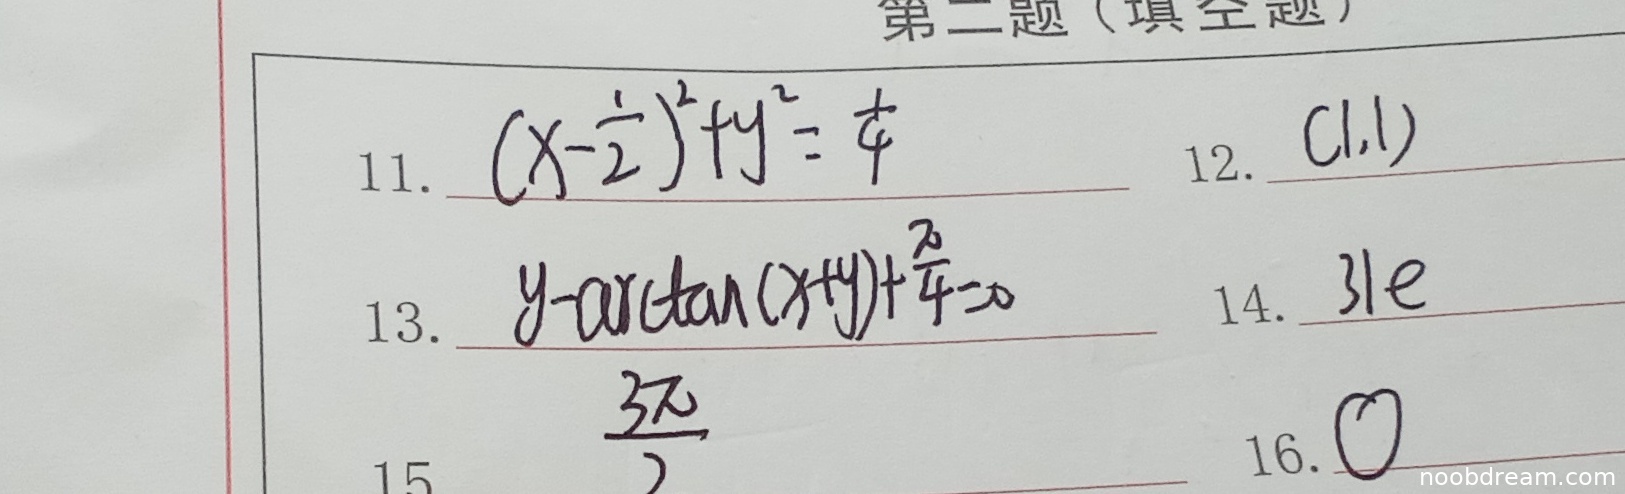 第二题（填空题）
11. (x-1/2)²+y²=1/4 12. (1,1)
13. y-arctan(x+y)+π/4=0 14. 31e
15 3π/2 16. 0
noobdream.com